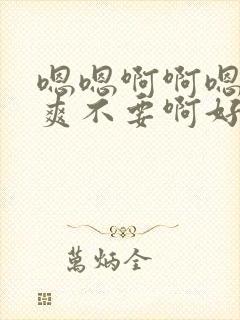 嗯嗯啊啊嗯
爽不要啊好
萬炳全